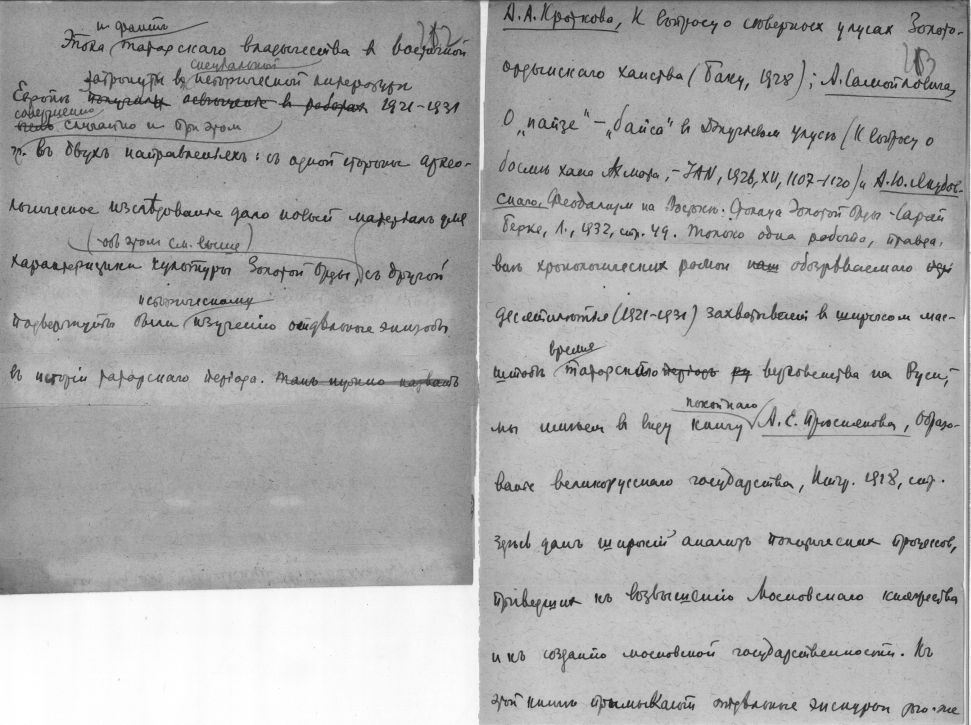 212
Эпоха татарскаго владычества в восточной
затронута в специальной исторической литературе
Европѣ получила освещение в работах 1921-1931
совершенно случайно и при этом
гг. въ двухъ направленіяхъ: съ одной стороны архео-
логическое изслѣдованіе дало новый матеріалъ для
(-объ этом см. выше)
характеристики культуры Золотой Орды, съ другой
историческому
подвергнуты были изученію отдѣльные эпизоды
въ исторіи татарскаго періода. Тамъ нужно назвать
213
А. А. Кроткова, К вопросу о северных улусах Золото-
ордынскаго ханства (Баку, 1928); А. Самойловича,
О „пайзе" – „байса" в Джучиевом улусе (К вопросу о
басме хана Ахмата, – IAN, 1926, XII, 1107-1120) и А. Ю. Якубов-
скаго, Феодализм на Востоке. Столица Золотой Орды - Сарай
Берке, Л., 1932, стр. 49. Только одна работа, правда,
внѣ хронологических рамок обозрѣваемаго
десятилѣтія (1921-1931) захватывает в широком мас-
штабѣ время татарскаго періодъ верховенства на Руси;
мы имѣем в виду книгу покойнаго А. Е. Прѣснякова, Образо-
ваніе великорусскаго государства, Птгр. 1918, стр.
Здѣсь данъ широкій анализъ политических процессов,
приведших къ возвышенію Московскаго княжества
и къ созданію московской государственности. Къ
этой книгѣ примыкают отдѣльные экскурсы того-же